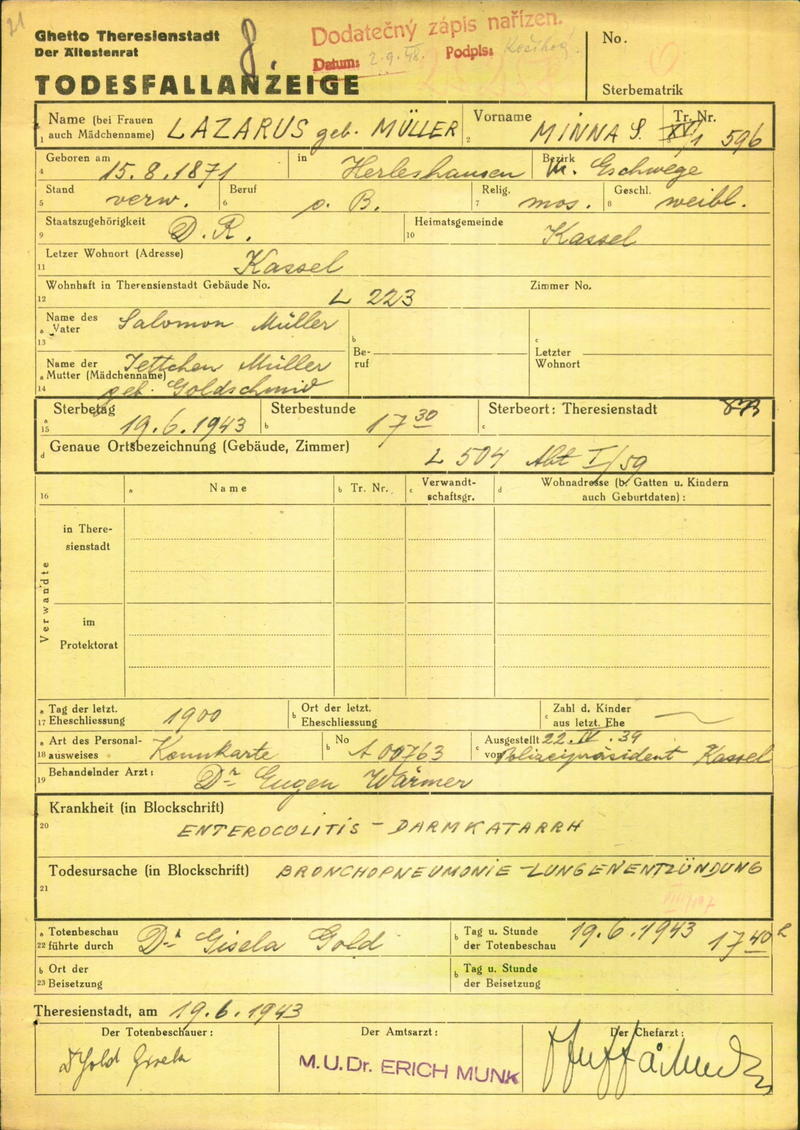 21
Ghetto Theresienstadt
Der Ältestenrat
8.
Dodatečný zápis nařízen.
Datum: 2.9.48. Podpis:
No.
TODESFALLANZEIGE
Sterbematrik
Name (bei Frauen auch Mädchenname) LAZARUS geb. MÜLLER
1
Vorname MINNA S.
2
Tr. Nr. XV/1 596
Geboren am 15.8.1871 in Herleshausen Bezirk Eschwege
4
Stand verw. Beruf o. B. Relig. mos. Geschl. weibl.
5 6 7 8
Staatszugehörigkeit D.R. Heimatsgemeinde Kassel
9 10
Letzer Wohnort (Adresse) Kassel
11
Wohnhaft in Theresienstadt Gebäude No. L 223 Zimmer No.
12
Name des Vater Salomon Müller
a 13
b Beruf
c Letzter Wohnort
Name der Mutter (Mädchenname) Jettchen Müller geb. Goldschmid
a 14
Sterbetag 19.6.1943 Sterbestunde 17 30 Sterbeort: Theresienstadt
a 15 b c
Genaue Ortsbezeichnung (Gebäude, Zimmer) L 504 Abt I/59
d
16 a Name b Tr. Nr. c Verwandtschaftsgr. d Wohnadresse (b. Gatten u. Kindern auch Geburtdaten):
Verwandte
in Theresienstadt
im Protektorat
a 17 Tag der letzt. Eheschliessung 1900 b Ort der letzt. Eheschliessung c Zahl d. Kinder aus letzt. Ehe —
a 18 Art des Personalausweises Kennkarte b No A 00763 c Ausgestellt von 22.IV.39 Polizeipräsident Kassel
19 Behandelnder Arzt: Dr Eugen Wärmer
Krankheit (in Blockschrift)
20 ENTEROCOLITIS – DARMKATARRH
Todesursache (in Blockschrift) BRONCHOPNEUMONIE – LUNGENENTZÜNDUNG
21
a 22 Totenbeschau führte durch Dr Gisela Gold b Tag u. Stunde der Totenbeschau 19.6.1943 17 40
b 23 Ort der Beisetzung b Tag u. Stunde der Beisetzung
Theresienstadt, am 19.6.1943
Der Totenbeschauer: Der Amtsarzt: Der Chefarzt:
Dr Gold Gisela
M.U.Dr. ERICH MUNK